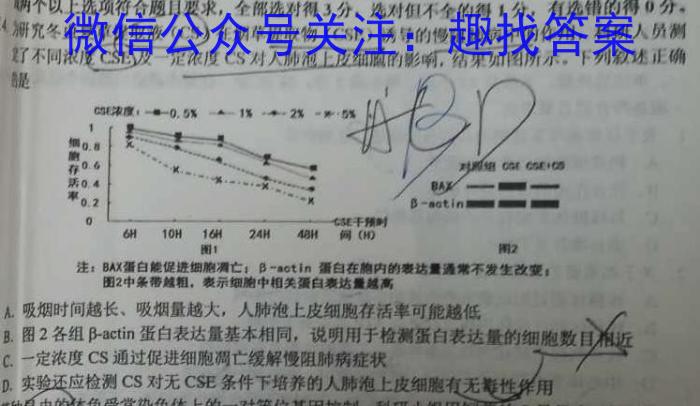 两个以上选项符合题目要求,全部选对得3分,选对但不全的得1分,有选错的得0分。
微信公众号关注:趣找答案
了不同浓度CSE)及一定浓度CS对人肺泡上皮细胞的影响,结果如图所示。下列叙述正确
是
CSE浓度: 0.5% 1% 2% 5%
细胞存活率
1
0.8
0.6
0.4
0.2
0
6H 10H 16H 24H 48H
CSE干预时间(H)
图1
A B D
对照组 CSE CSE+CS
BAX
β-actin
图2
注:BAX蛋白能促进细胞凋亡;β-actin 蛋白在胞内的表达量通常不发生改变;
图2中条带越粗,表示细胞中相关蛋白表达量越高
A. 吸烟时间越长、吸烟量越大,人肺泡上皮细胞存活率可能越低
B. 图2各组β-actin蛋白表达量基本相同,说明用于检测蛋白表达量的细胞数目相近
C. 一定浓度CS通过促进细胞凋亡缓解慢阻肺病症状
D. 实验还应检测CS对无CSE条件下培养的人肺泡上皮细胞有无毒性作用